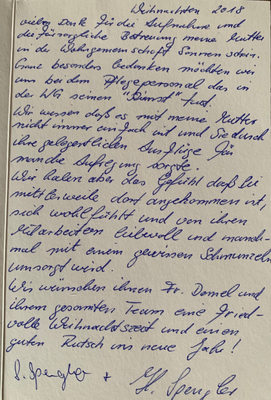 Weihnachten 2018
vielen Dank für die Aufnahme und
die fürsorgliche Betreuung meine Mutter
in der Wohngemeinschaft Sonnenschein.
Ganz besonders bedanken möchten wir
uns bei dem Pflegepersonal das in
der WG seinen "Dienst" tut.
Wir wissen daß es mit meine Mutter
nicht immer einfach ist und Sie durch
ihre gelegentlichen Ausflüge für
manche Aufregung sorgte.
Wir haben aber das Gefühl daß Sie
mittlerweile dort angekommen ist,
sich wohlfühlt und von ihren
Mitarbeitern liebevoll und manch-
mal mit einem gewissen Schmunzeln
umsorgt wird.
Wir wünschen ihnen Fr. Domel und
ihrem gesamten Team eine Fried-
volle Weihnachtszeit und einen
guten Rutsch ins neue Jahr!
S. Spengler + H. Spengler